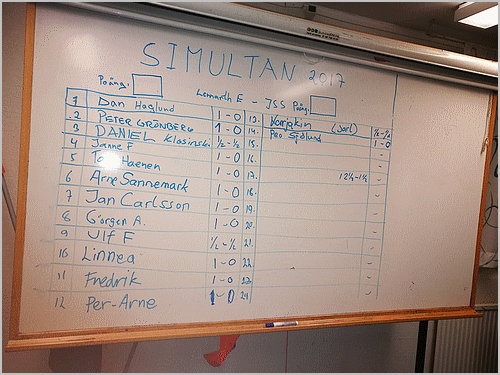 SIMULTAN 2017
Poäng. Lennarth E - JSS Poäng.
1 Dan Hoglund 1-0 13. (Jarl) ½-½
2 PETER GRÖNBERG 1-0 14. Peo Sjölund 1-0
3 DANIEL Klosinski ½-½ 15. -
4 Janne F 1-0 16. -
5 Haenen 1-0 17. 12½-1½ -
6 Arne Sannemark 1-0 18. -
7 Jan Carlsson 1-0 19. -
8 Görgen A. 1-0 20. -
9 Ulf F ½-½ 21. -
10 Linnea 1-0 22. -
11 Fredrik 1-0 23. -
12 Per-Arne 1-0 24. -